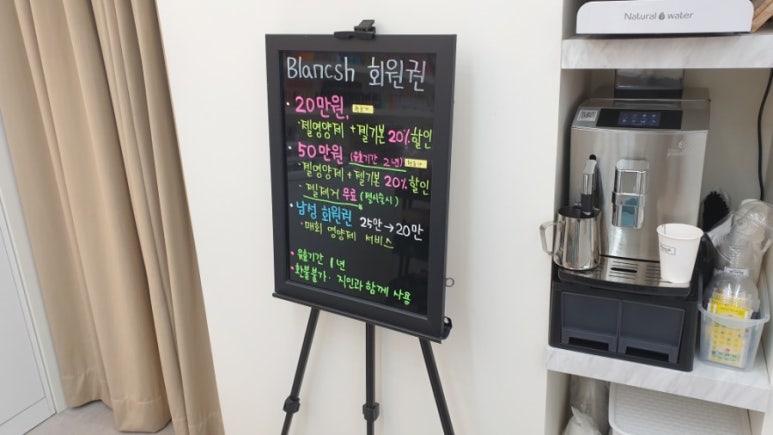 Blancsh 회원권
· 20만원,
· 젤영양제 + 젤기본 20% 할인
· 50만원 (유효기간 2년)
· 젤영양제 + 젤기본 20% 할인
· 젤제거 무료 (평시술시)
· 남성 회원권 25만 → 20만
· 매회 영양제 서비스
· 유효기간 1년
· 환불불가. 지인과 함께 사용
Natural water